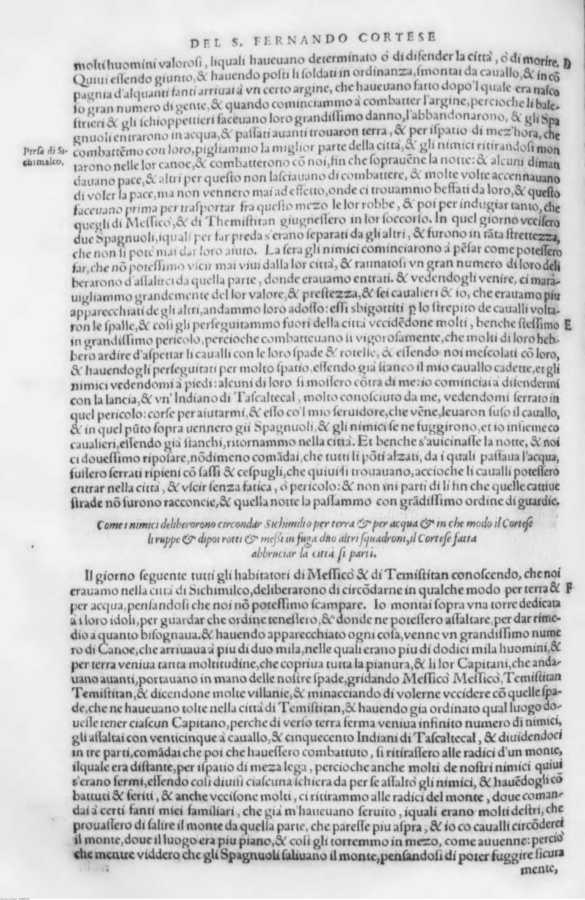 DEL S. FERNANDO CORTESE
molti huomini valorosi, liquali haueuano determinato ò di difender la città, ò di morire. D
Quiui essendo giunto, & hauendo posti li soldati in ordinanza, smontai da cauallo, & in cō
pagnia d'alquanti fanti arriuai à vn certo argine, che haueuano fatto dopo'l quale era nasco
so gran numero di gente, & quando cominciammo à combatter l'argine, percioche li bale-
strieri & gli schioppettieri faceuano loro grandissimo danno, l'abbandonarono, & gli Spa
gnuoli entrarono in acqua, & passati auanti trouaron terra, & per ispatio di mez'hora, che
Presa di Si-
chimalco.
combattēmo con loro, pigliammo la miglior parte della città, & gli nimici ritirandosi mon
tarono nelle lor canoe, & combatterono cō noi, fin che soprauēne la notte: & alcuni diman
dauano pace, & altri per questo non lasciauano di combattere, & molte volte accennauano
di voler la pace, ma non vennero mai ad effetto, onde ci trouammo beffati da loro, & questo
faceuano prima per trasportar fra questo mezo le lor robbe, & poi per indugiar tanto, che
quegli di Messico, & di Themistitan giugnessero in lor soccorso. In quel giorno vccisero
due Spagnuoli, iquali per far preda s'erano separati da gli altri, & furono in tāta strettezza,
che non li pote mai dar loro aiuto. La sera gli nimici cominciarono à pēsar come potessero
far, che nō potessimo vscir mai viui dalla lor città, & raunatosi vn gran numero di loro deli
berarono d'assalirci da quella parte, donde erauamo entrati. & vedendogli venire, ci mara-
uigliammo grandemente del lor valore, & prestezza, & sei caualieri & io, che erauamo più
apparecchiati de gli altri, andammo loro adosso: essi sbigottiti p lo strepito de caualli volta-
ron le spalle, & così gli perseguitammo fuori della città vccidēdone molti, benche stessimo E
in grandissimo pericolo, percioche combatteuano si vigorosamente, che molti di loro heb-
bero ardire d'aspettar li caualli con le loro spade & rotelle, & essendo noi mescolati cō loro,
& hauendogli perseguitati per molto spatio, essendo già stanco il mio cauallo cadette, et gli
nimici vedendomi à piedi: alcuni di loro si mossero cōtra di me: io cominciai à difendermi
con la lancia, & vn'Indiano di Tascaltecal, molto conosciuto da me, vedendomi serrato in
quel pericolo: corse per aiutarmi, & esso co'l mio seruidore, che vēne, leuaron suso il cauallo,
& in quel pūto sopra uennero gii Spagnuoli, & gli nimici se ne fuggirono, et io insieme co
caualieri, essendo già stanchi, ritornammo nella città. Et benche s'auicinasse la notte, & noi
ci douessimo riposare, nōdimeno comādai, che tutti li pōti alzati, da i quali passaua l'acqua,
fussero serrati ripieni cō sassi & cespugli, che quiui si trouauano, accioche li caualli potessero
entrar nella città, & vscir senza fatica, ò pericolo: & non mi parti di li fin che quelle cattiue
strade nō furono racconcie, & quella notte la passammo con grādissimo ordine di guardie.
Come i nimici deliberorono circondar Sichimilco per terra & per acqua & in che modo il Cortese
li ruppe & dipoi rotti & messi in fuga duo altri squadroni, il Cortese fatta
abbruciar la città si parti.
Il giorno seguente tutti gli habitatori di Messico & di Temistitan conoscendo, che noi
erauamo nella città di Sichimilco, deliberarono di circōdarne in qualche modo per terra & F
per acqua, pensandosi che noi nō potessimo scampare. Io montai sopra vna torre dedicata
à i loro idoli, per guardar che ordine tenessero, & donde ne potessero assaltare, per dar rime-
dio a quanto bisognaua. & hauendo apparecchiato ogni cosa, venne vn grandissimo nume
ro di Canoe, che arriuaua à piu di duo mila, nelle quali erano piu di dodici mila huomini, &
per terra veniua tanta moltitudine, che copriua tutta la pianura, & li lor Capitani, che anda-
uano auanti, portauano in mano delle nostre spade, gridando Messico Messico, Temistitan
Temistitan, & dicendone molte villanie, & minacciando di volerne vccidere cō quelle spa-
de, che ne haueuano tolte nella città di Temistitan, & hauendo gia ordinato qual luogo do-
uesse tener ciascun Capitano, perche di verso terra ferma veniua infinito numero di nimici,
gli assaltai con venticinque à cauallo, & cinquecento Indiani di Tascaltecal, & diuidendoci
in tre parti, comādai che poi che hauessero combattuto, si ritirassero alle radici d'un monte,
ilquale era distante, per ispatio di meza lega, percioche anche molti de nostri nimici quiui
s'erano fermi, essendo così diuisi ciascuna schiera da per se assaltò gli nimici, & hauēdogli cō
battuti & feriti, & anche vccisone molti, ci ritirammo alle radici del monte, doue coman-
dai à certi fanti miei familiari, che già m'haueuano seruito, iquali erano molti destri, che
prouassero di salire il monte da quella parte, che paresse piu aspra, & io co caualli circōderei
il monte, doue il luogo era piu piano, & così gli torremmo in mezo, come auuenne: percio
che mentre viddero che gli Spagnuoli saliuano il monte, pensandosi di poter fuggire sicura
mente,